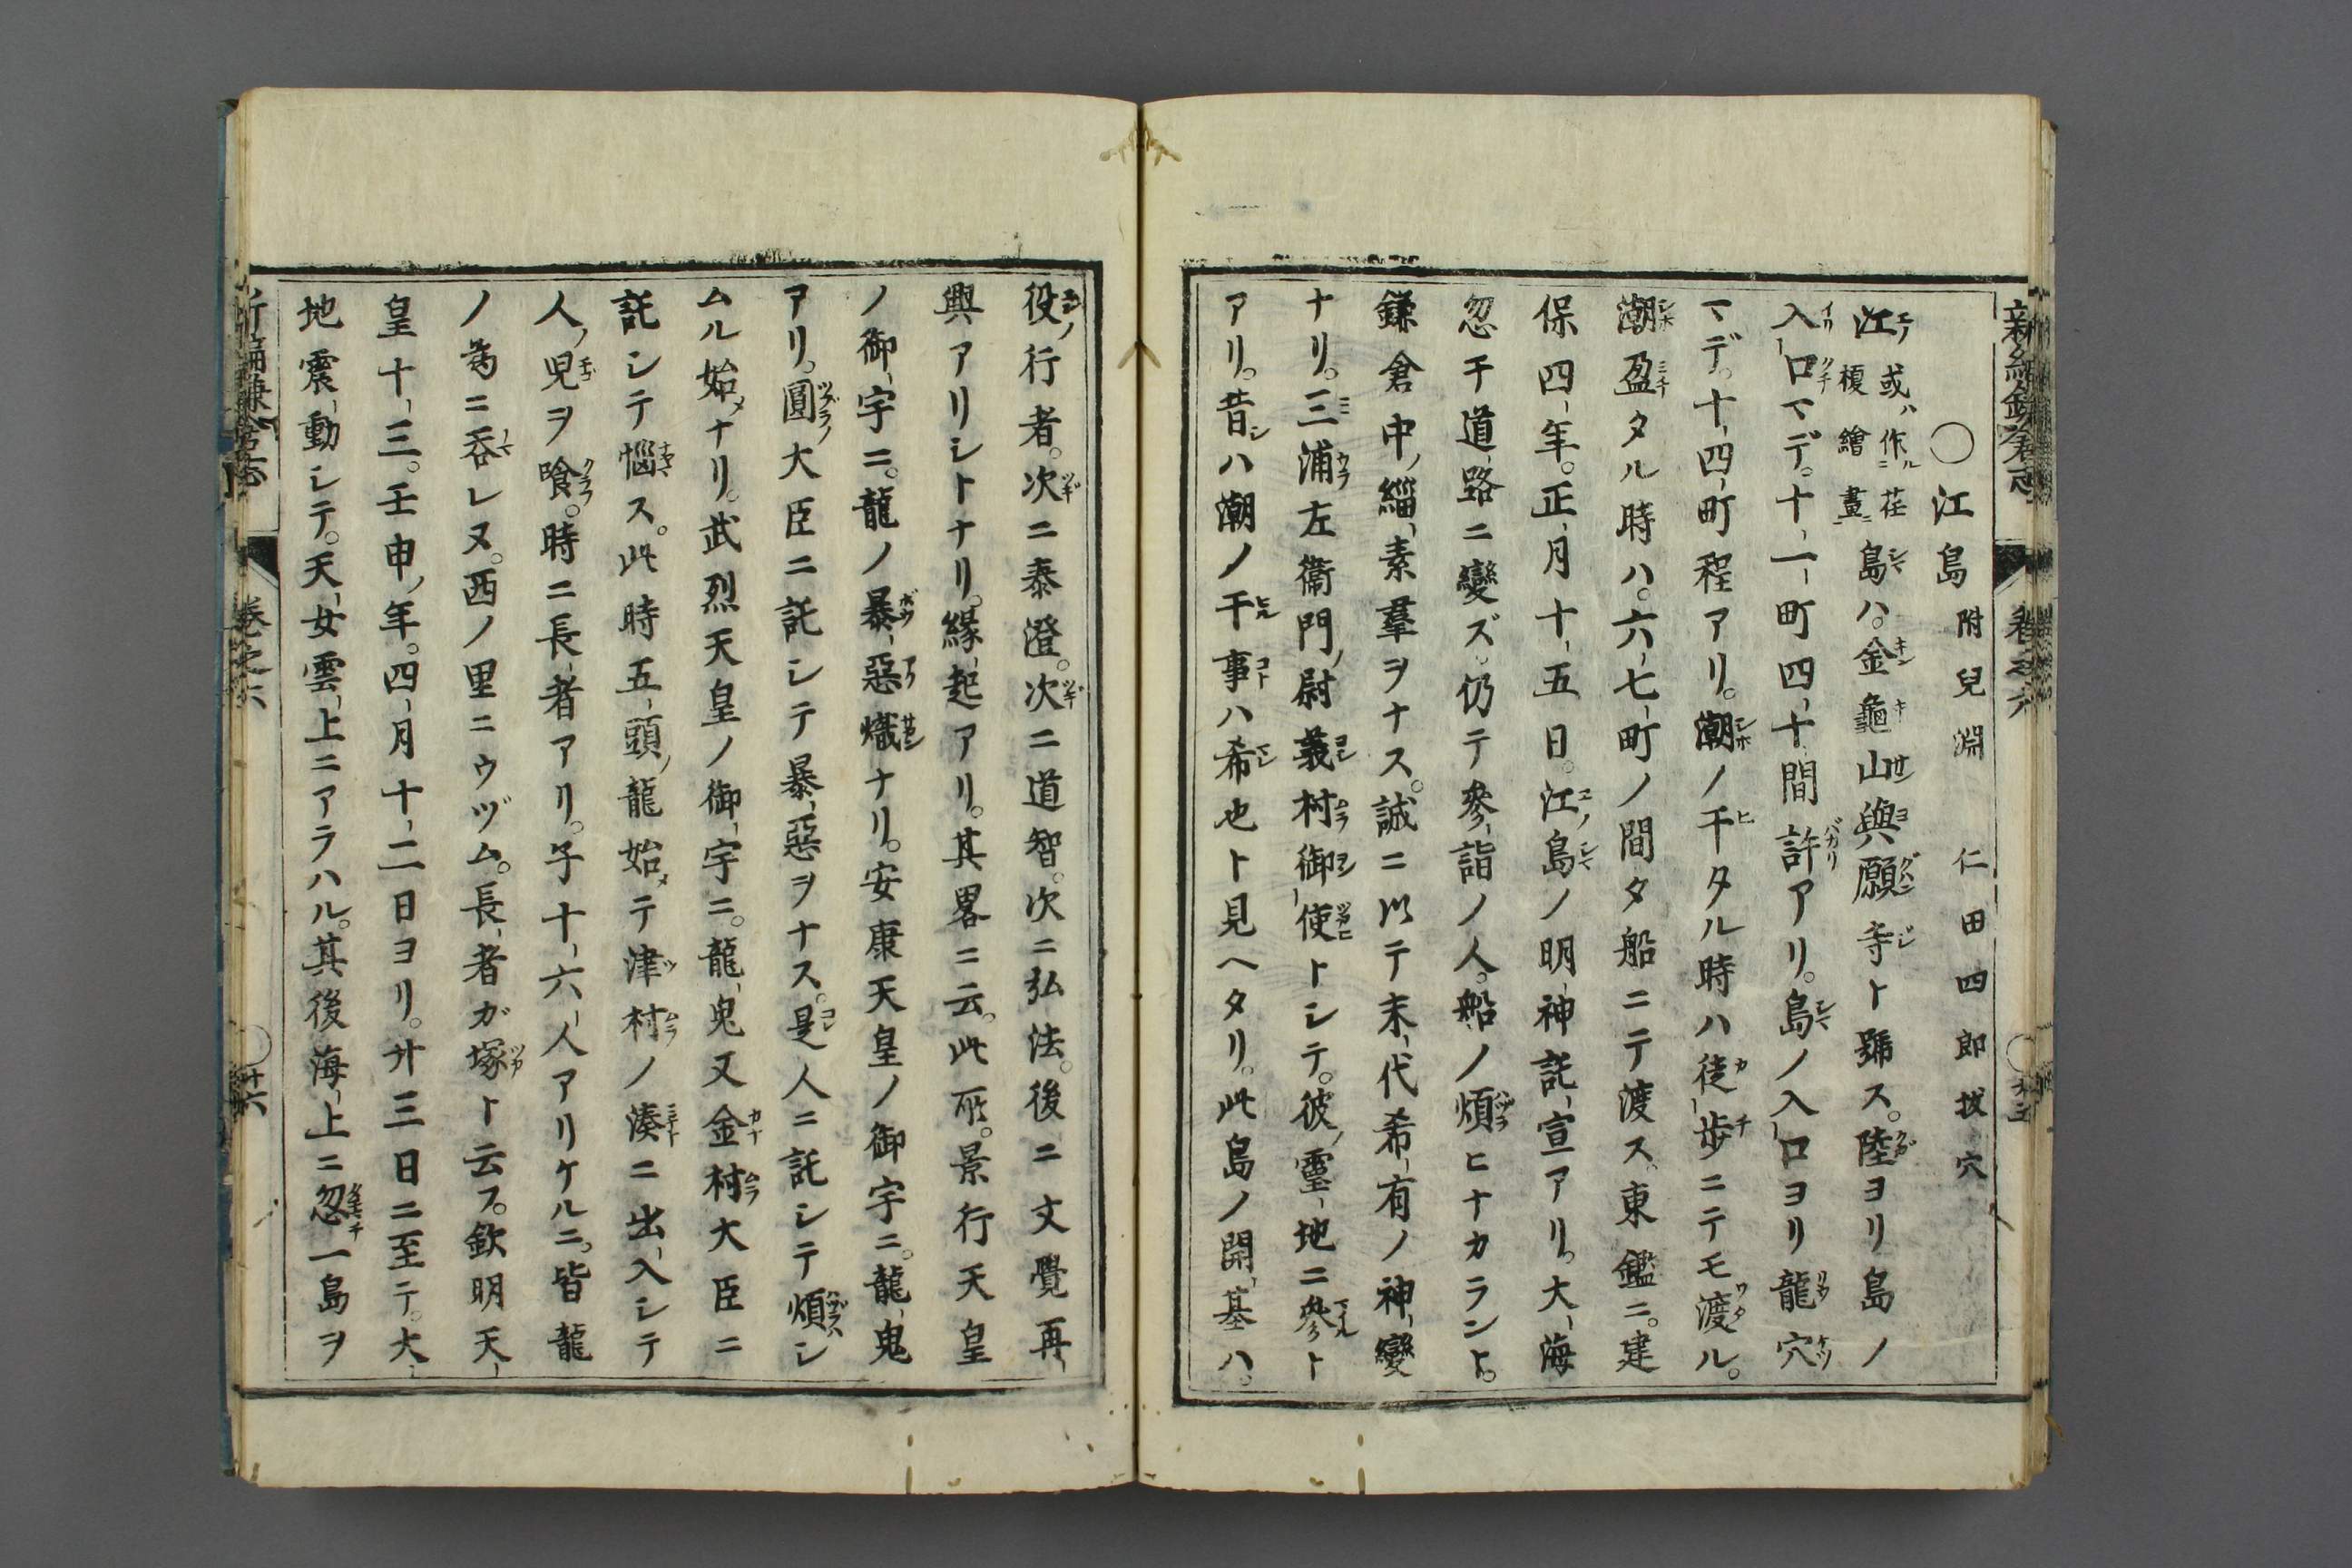 新編鎌倉志 卷之六
○江島 附兒淵 仁田四郎拔穴
江或ハ作ル荏榎繪畫島ハ。金龜山與願寺ト號ス。陸ヨリ島ノ
入口マデ。十一町四十間許アリ。島ノ入口ヨリ龍穴
マデ。十四町程アリ。潮ノ干タル時ハ徒歩ニテモ渡ル。
潮盈タル時ハ。六七町ノ間タ船ニテ渡ス。東鑑ニ。建
保四年。正月十五日。江島ノ明神託宣アリ。大海
忽干道路ニ變ズ。仍テ參詣ノ人。船ノ煩ヒナカラント。
鎌倉中ノ緇素羣ヲナス。誠ニ以テ末代希有ノ神變
ナリ。三浦左衞門ノ尉義村御使トシテ。彼ノ靈地ニ參ト
アリ。昔シハ潮ノ干事ハ希也ト見ヘタリ。此島ノ開基ハ。
役ノ行者。次ニ泰澄。次ニ道智。次ニ弘法。後ニ文覺再
興アリシトナリ。縁起アリ。其畧ニ云。此所。景行天皇
ノ御宇ニ。龍ノ暴惡熾ナリ。安康天皇ノ御宇ニ。龍鬼
アリ。圓大臣ニ託シテ暴惡ヲナス。是人ニ託シテ煩シ
ムル始メナリ。武烈天皇ノ御宇ニ。龍鬼又金村大臣ニ
託シテ惱ス。此時五頭ノ龍始メテ津村ノ湊ニ出入シテ
人ノ児ヲ喰。時ニ長者アリ。子十六人アリケルニ。皆龍
ノ爲ニ呑レヌ。西ノ里ニウヅム。長者ガ塚ト云フ。欽明天
皇十三。壬申ノ年。四月十二日ヨリ。廾三日ニ至テ。大
地震動シテ。天女雲上ニアラハル。其後海上ニ忽一島ヲ
新編鎌倉志 卷之六 ○十六